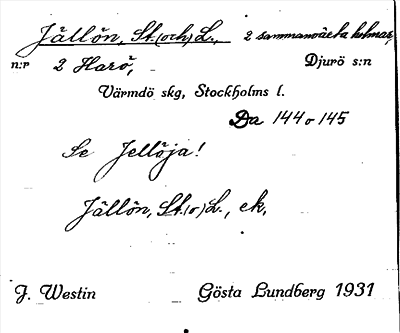 Jällön, St. (och) L., 2 sammanväxta holmar,
n:r 2 Harö, Djurö s:n
Värmdö skg, Stockholms l.
Da 144 o 145
Se Jellöja!
Jällön, St. (o) L., ek.
J. Westin Gösta Lundberg 1931